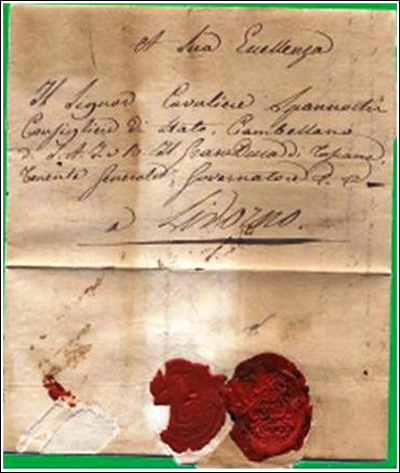 A Sua Eccellenza
Il Signor Cavaliere Spannochi
Consigliere di Stato, Ciambellano
di S. A. I. e R. Il Gran Duca di Toscana
Tenente Generale, Governatore
a Livorno.